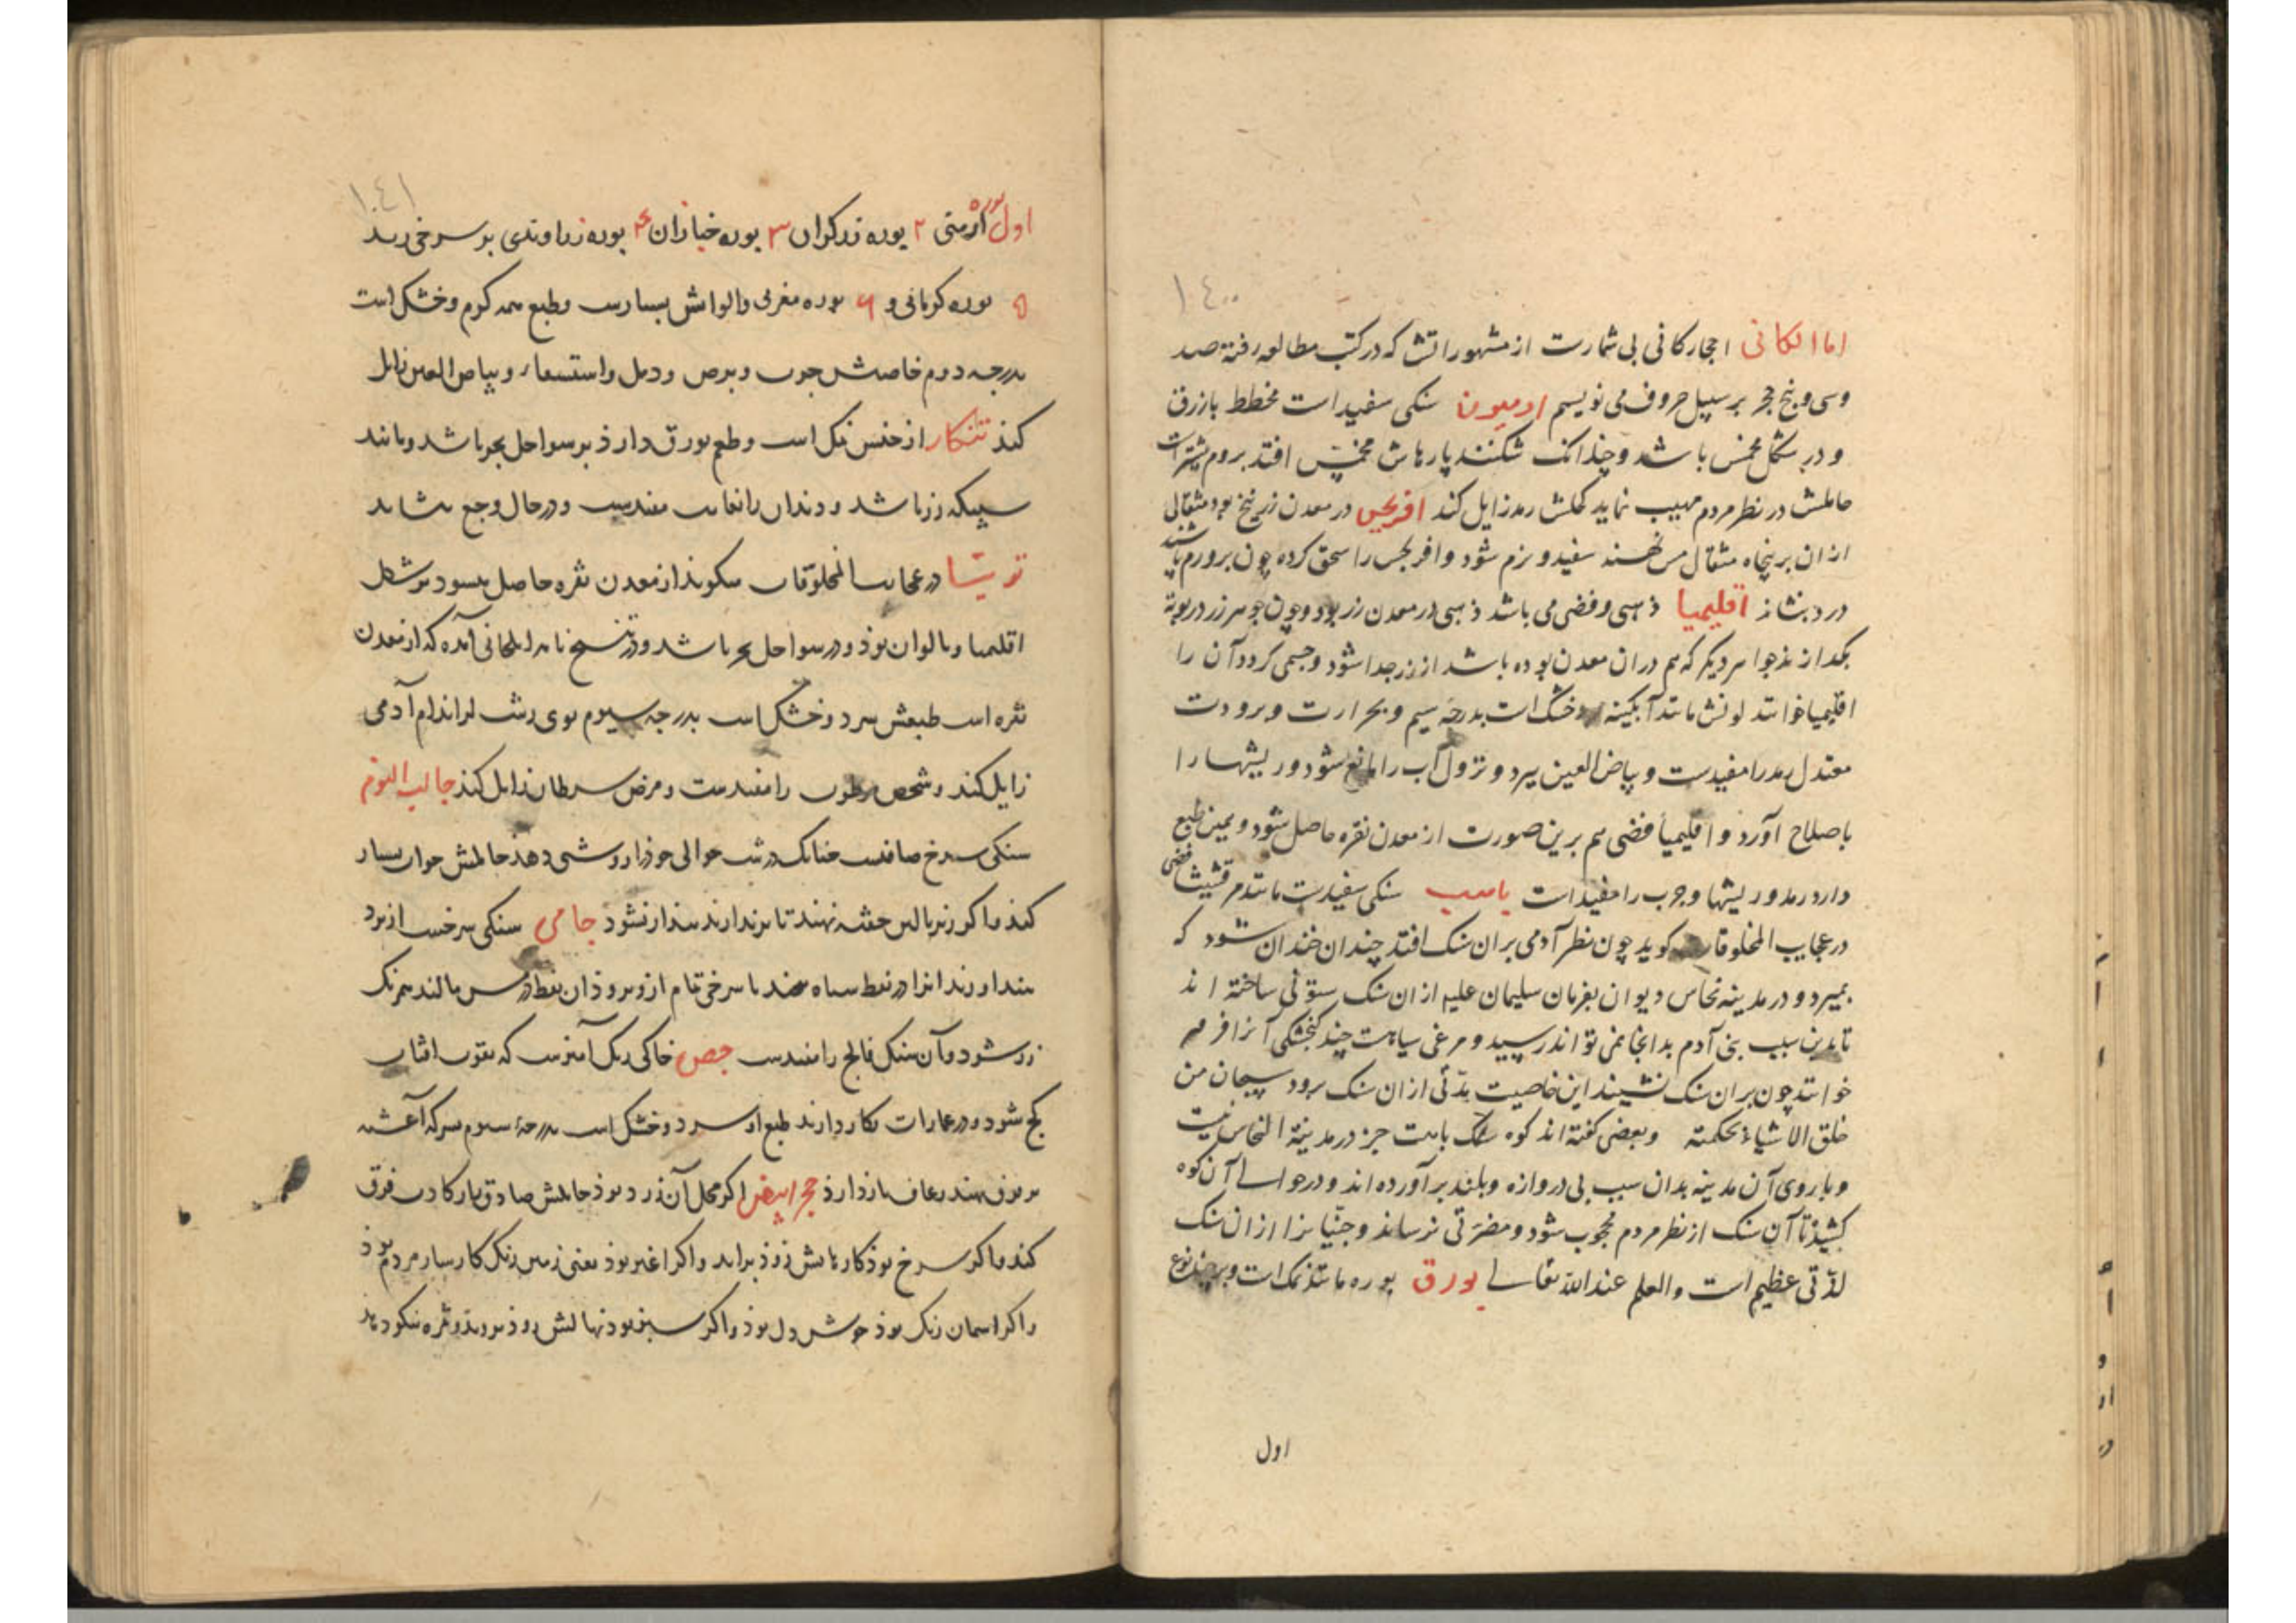 ١٤٠٠
اما الکانی احجار کانی بی شمارست از مشهوراتش که در کتب مطالعه رفته صد
وسی و پنج حجر بر سبیل حروف می نویسم ادمیون سنکی سفیداست مخطط بازرق
و در شکل مخمس باشد و چندانک شکنند پارهاش مخمس افتد بروم بیشترست
حاملش در نظر مردم مهیب نماید کحلش رمد زایل کند افریجس در معدن زرنیخ بود مثقالی
ازان بر پنجاه مثقال مس نهند سفید و نرم شود و افریجس را سحق کرده چون برورم پاشند
درد بنشاند اقلیمیا ذهبی و فضی می باشد ذهبی در معدن زر بود و چون جوهر زر در بوته
بکدازند جواهر دیکر که هم دران معدن بوده باشد از زر جدا شود و جسمی کردد آن را
اقلیمیا خوانند لونش مانند آبکینه خشک است بدرجه سیم و بحرارت و برودت
معتدل رمد را مفیدست و بیاض العین ببرد و نزول آب را مانع شود و ریشها را
باصلاح آورد و اقلیمیا فضی هم برین صورت از معدن نقره حاصل شود و همین طبع
دارد رمد و ریشها و جرب را مفیداست باهت سنکی سفیدست مانند مرقشیشا فضی
در عجایب المخلوقات کوید چون نظر آدمی بران سنک افتد چندان خندان شود که
بمیرد و در مدینه نحاس دیوان بفرمان سلیمان علیه ازان سنک ستونی ساخته اند
تا بدین سبب بنی آدم بدانجا نمی تواند رسید و مرغی سیاهست چند کنجشکی آنرا فرفر
خوانند چون بران سنک نشیند این خاصیت مدتی ازان سنک برود سبحان من
خلق الاشیاء بحکمته وبعضی کفته اند کوه سنک باهت جز در مدینة النحاس نیست
و باروی آن مدینه بدان سبب بی دروازه و بلند برآورده اند و در حوالی آن کوه
کشیده تا آن سنک از نظر مردم محجوب شود و مضرتی نرساند و جنیانرا ازان سنک
لذتی عظیم است والعلم عند الله تعالی بورق بوره مانند نمک است و بر چند نوع
اول
١٤١
اول بوره ارمنی ٢ بوره زرکران ٣ بوره خبازان ۴ بوره زراوندی بر سرخی زند
۵ بوره کرمانی و ۶ بوره مغربی والوانش بسیارست وطبع همه کرم و خشک است
بدرجه دوم خاصیتش جرب و برص و دمل و استسقاء و بیاض العین زایل
کند تنکار از جنس نمک است و طعم بورق دارد بر سواحل بحر باشد و مانند
سبیکه زر باشد و دندان را بغایت مفیدست و در حال وجع بنشاند
توتیا در عجایب المخلوقات میکوید از معدن نقره حاصل میشود بر شکل
اقلیمیا و بالوان بود و در سواحل بحر باشد و در تنسخ نامه ایلخانی آمده که از معدن
نقره است طبعش سرد و خشک است بدرجه سیوم بوی زشت از اندام آدمی
زایل کند و شخص مرطوب را مفیدست و مرض سرطان زایل کند جالب النوم
سنکی سرخ صافیست چنانک در شب حوالی خود را روشنی دهد حاملش خواب بسیار
کند و اکر زیر بالین خفته نهند تا برندارند بیدار نشود جامی سنکی سرخست از یزد
بیندازند انرا در نفط سیاه نهند تا سرخی تمام ازو برود ان نفط در مس مالند همرنک
زر شود و آن سنک فالج را مفیدست جص خاکی ریک آمیزست که بقوت افتاب
کچ شود و در عمارات بکار دارند طبع او سرد و خشک است بدرجهٔ سیوم بسرکه آغشته
بر نهند رعاف بازدارد حجر ابیض اکر محل آن زرد بود حاملش صادق
کند و اکر سرخ بود کارهایش زود براید و اکر اغبر بود یعنی زمین رنک
و اکر اسمان رنک بود خوش دل بود و اکر سبز بود نهالش زود بروید و ثمره نیکو دهد